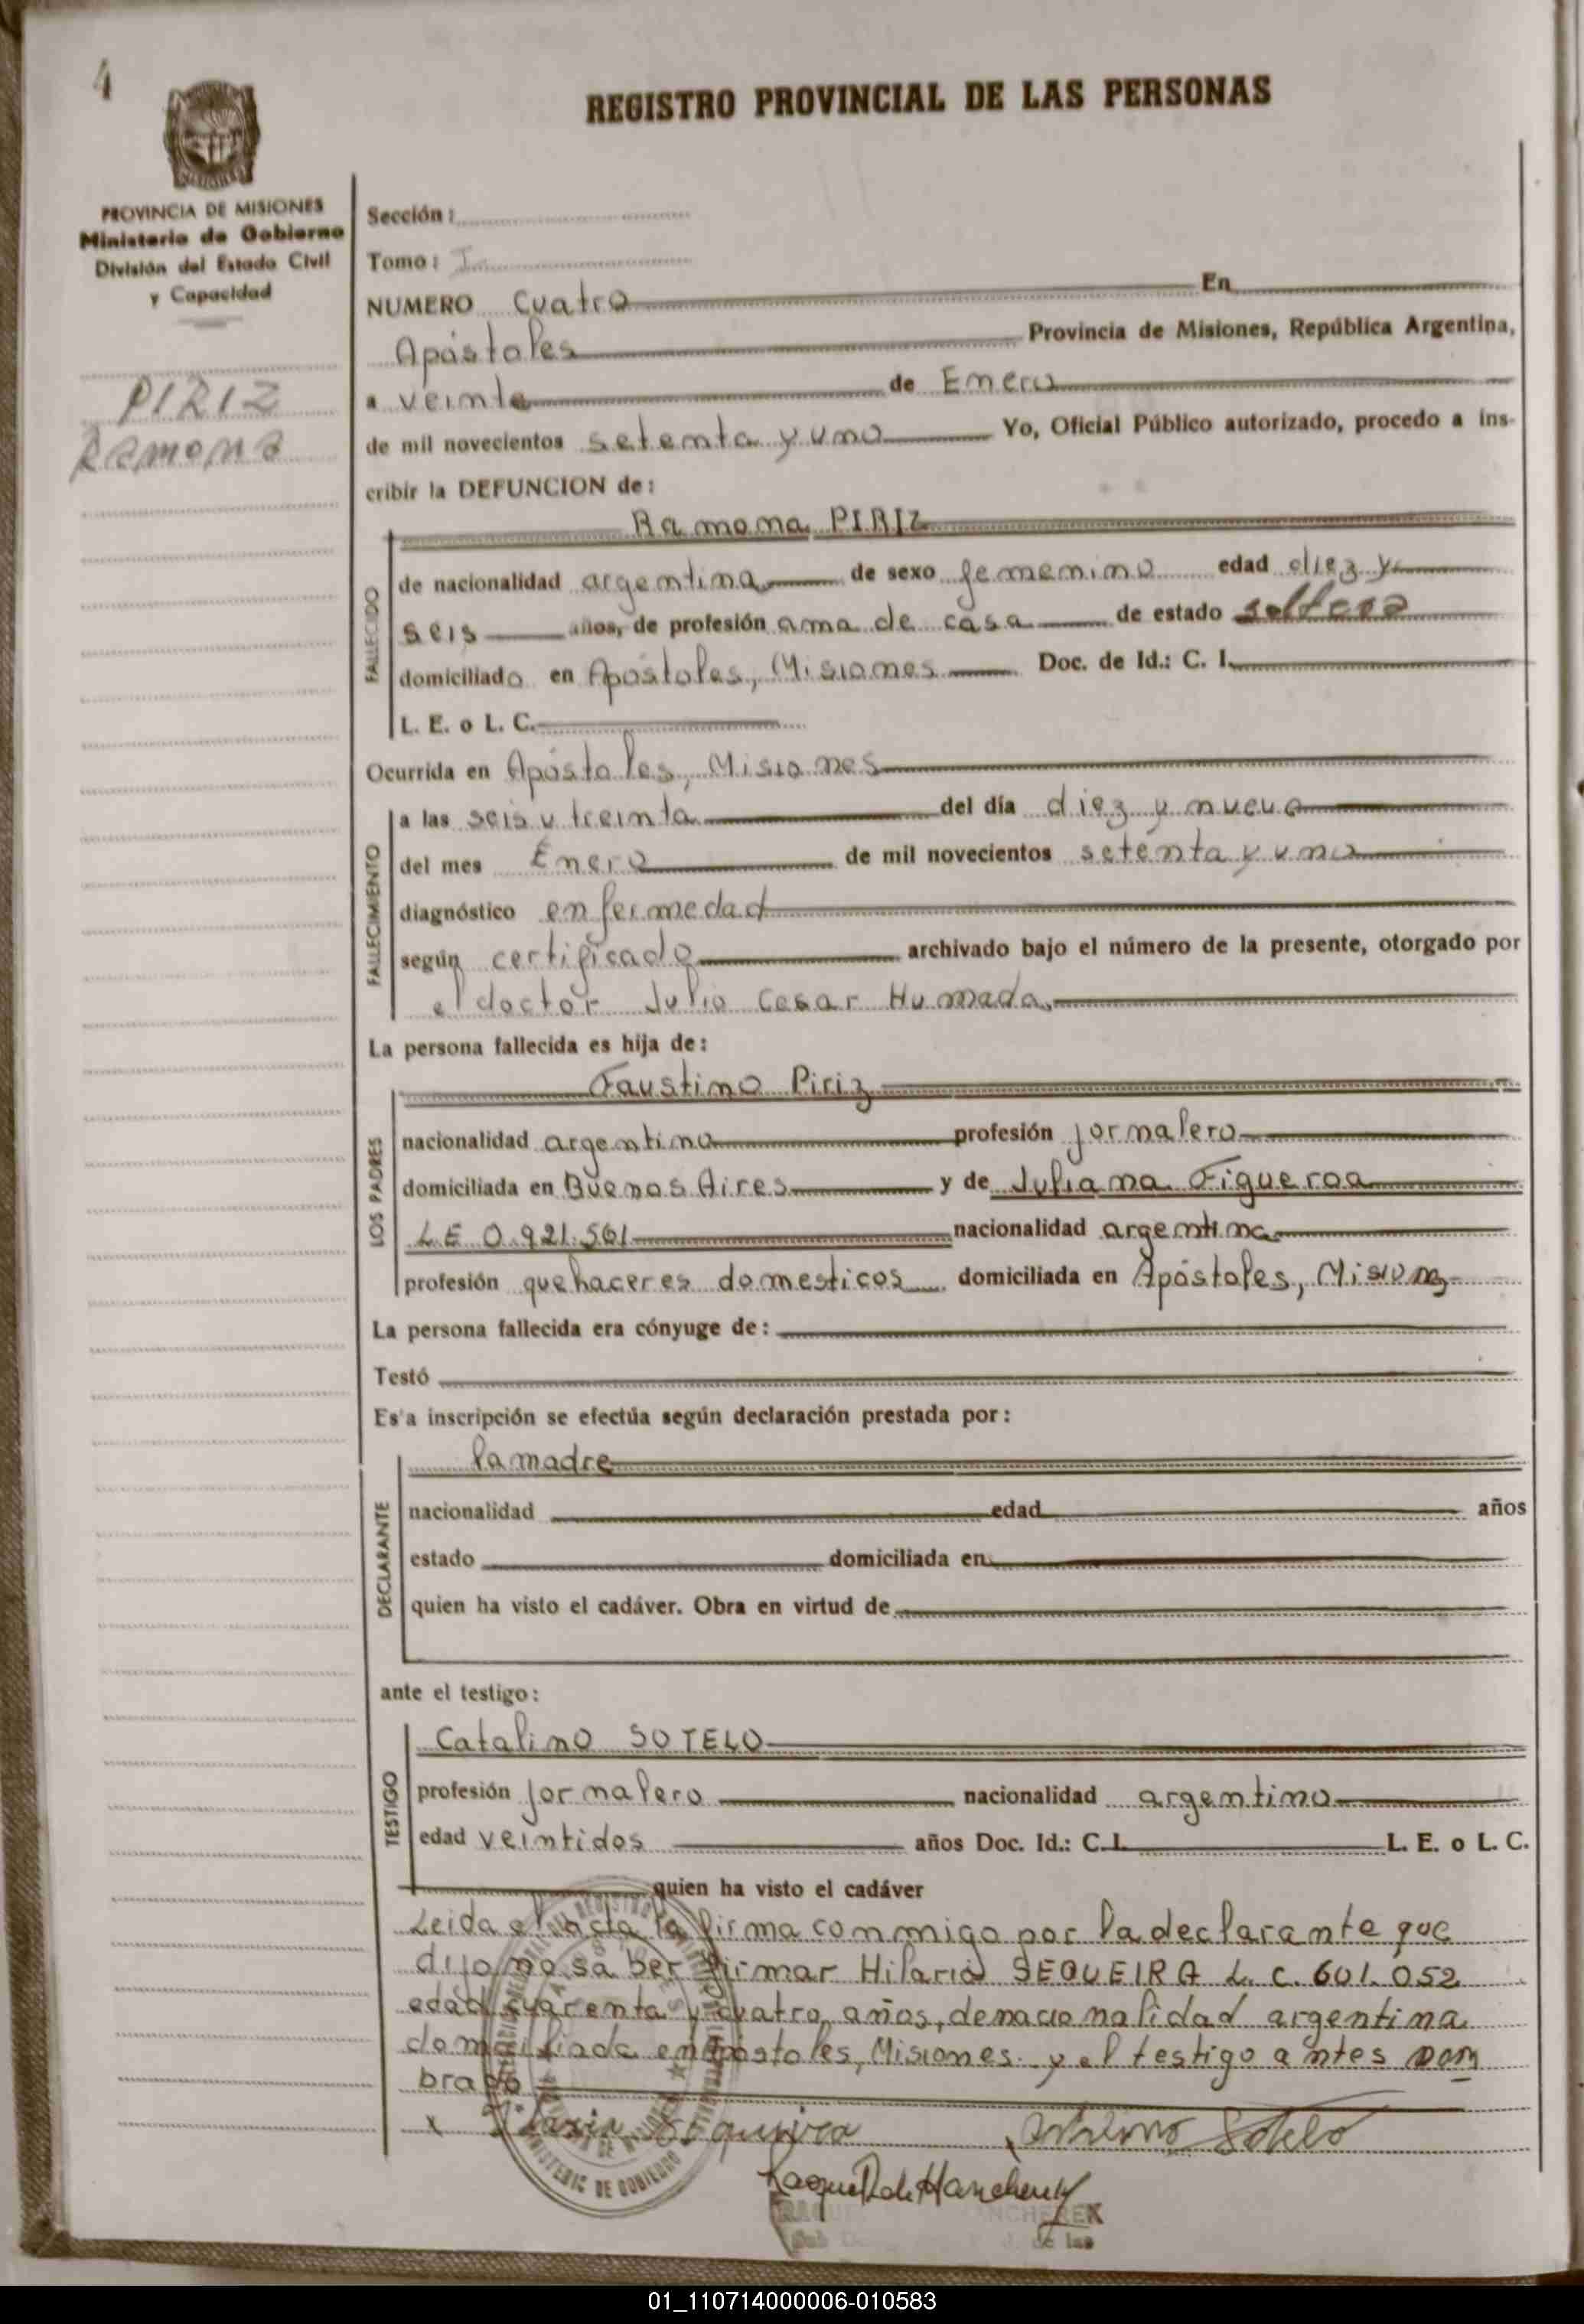 4
REGISTRO PROVINCIAL DE LAS PERSONAS
PROVINCIA DE MISIONES
Ministerio de Gobierno
División del Estado Civil
y Capacidad
PIRIZ
Ramona
Sección:
Tomo: I
NUMERO Cuatro En
Apóstoles Provincia de Misiones, República Argentina,
a veinte de Enero
de mil novecientos setenta y uno Yo, Oficial Público autorizado, procedo a ins-
cribir la DEFUNCION de:
Ramona PIRIZ
FALLECIDO
de nacionalidad argentina de sexo femenino edad diez y
seis años, de profesión ama de casa de estado soltera
domiciliada en Apóstoles, Misiones Doc. de Id.: C. I.
L. E. o L. C.
Ocurrida en Apóstoles, Misiones
FALLECIMIENTO
a las seis y treinta del día diez y nueve
del mes Enero de mil novecientos setenta y uno
diagnóstico enfermedad
según certificado archivado bajo el número de la presente, otorgado por
el doctor Julio Cesar Humada
La persona fallecida es hija de:
LOS PADRES
Faustino Piriz
nacionalidad argentino profesión jornalero
domiciliada en Buenos Aires y de Juliana Figueroa
L E 0.921.561 nacionalidad argentina
profesión quehaceres domesticos domiciliada en Apóstoles, Misiones
La persona fallecida era cónyuge de:
Testó
Es'a inscripción se efectúa según declaración prestada por:
DECLARANTE
la madre
nacionalidad edad años
estado domiciliada en
quien ha visto el cadáver. Obra en virtud de
ante el testigo:
TESTIGO
Catalino SOTELO
profesión jornalero nacionalidad argentino
edad veintidos años Doc. Id.: C. I. L. E. o L. C.
quien ha visto el cadáver
Leida el acta la firma conmigo por la declarante que
dijo no saber firmar Hilaria SEQUEIRA L. C. 601.052
edad cuarenta y cuatro años, de nacionalidad argentina
domiciliada en Apóstoles, Misiones y el testigo antes nom
brado
x Ilaria Sequeira Sotelo
MINISTERIO DE GOBIERNO
01_110714000006-010583